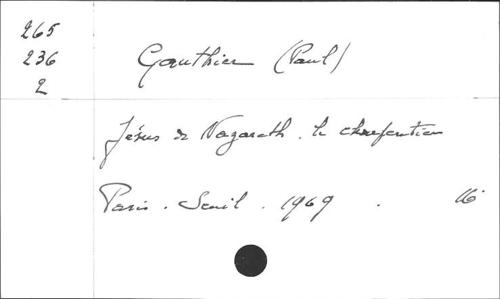 265
236
2
Gauthier (Paul)
Jésus de Nazareth . le charpentier
Paris . Seuil . 1969 . 16°